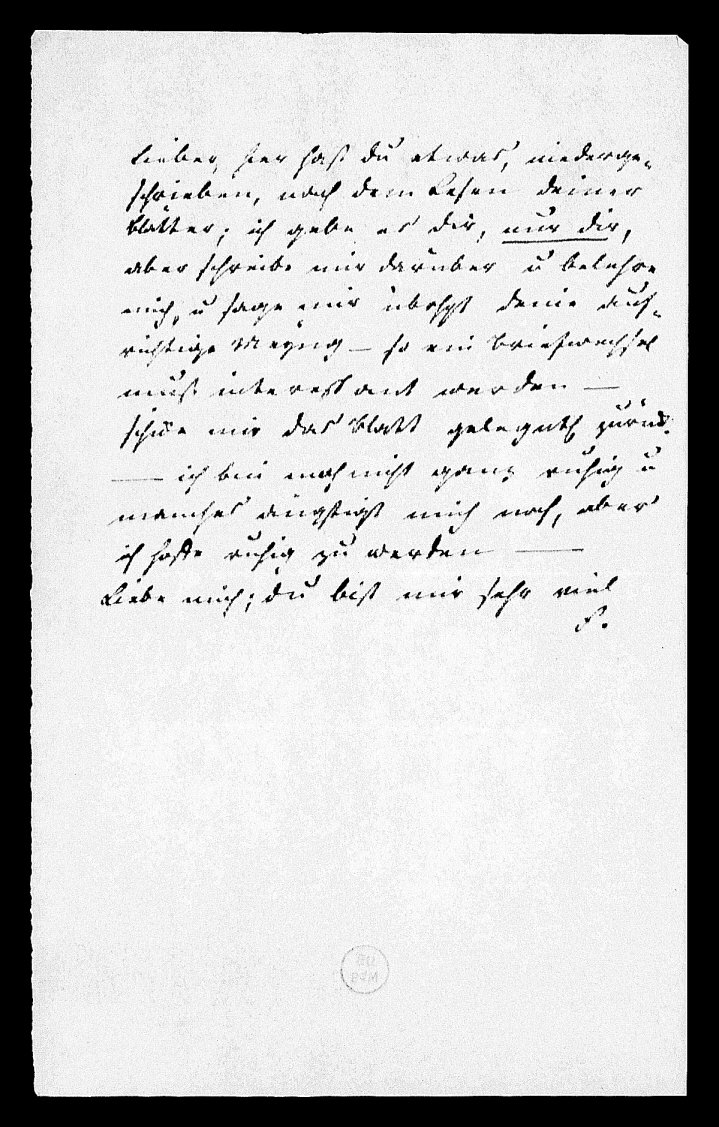 Lieber, hier hast du etwas, niederge-
schrieben, nach dem Lesen deiner
Blätter; ich gebe es dir, nur dir,
aber schreibe mir darüber u belehre
mich, u sage mir übhpt deine auf-
richtige Meyng — so ein Briefwechsel
muß interessant werden —
schicke mir das Blatt gelegntl zurück.
— ich bin noch nicht ganz ruhig u
manches ängstigt mich noch, aber
ich hoffe ruhig zu werden —
Liebe mich; du bist mir sehr viel
F.